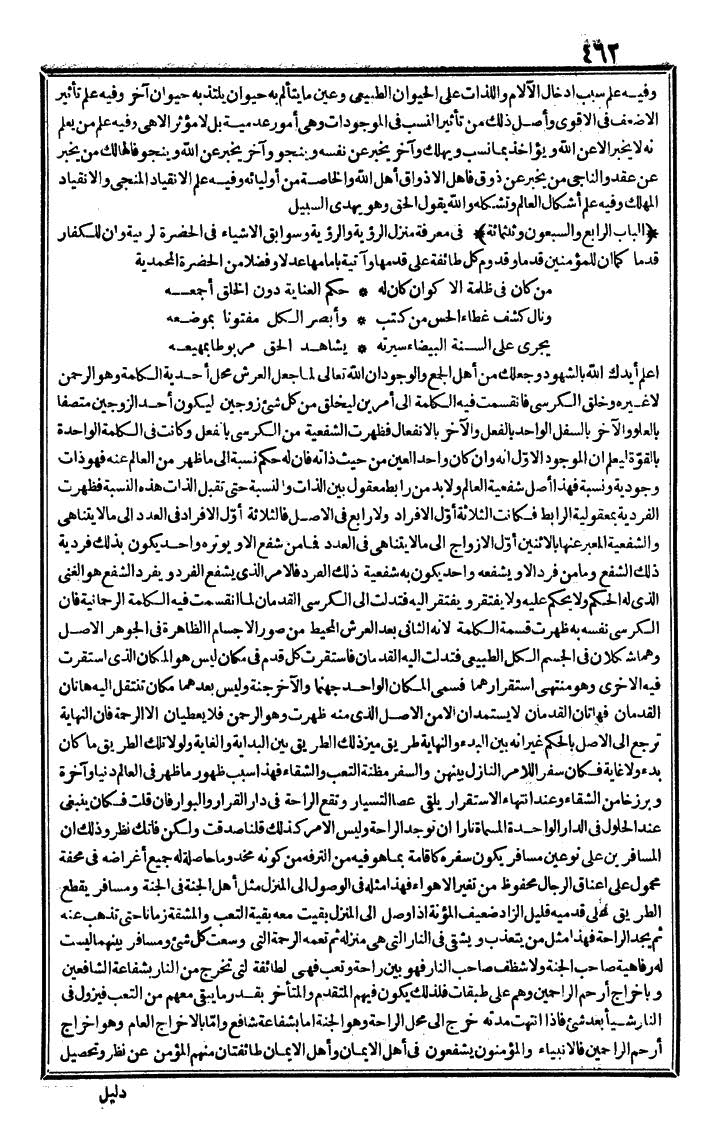 ٤٦٢
وفيه علم سبب ادخال الآلام واللذات على الحيوان الطبيعى وعين ما يتألم به حيوان يلتذ به حيوان آخر وفيه علم تأثير
الاضعف فى الاقوى وأصل ذلك من تأثير النسب فى الموجودات وهى أمور عدمية بل لا مؤثر الا هى وفيه علم من يعلم
نه لا يخبر الا عن الله و يؤاخذ بما نسب و يهلك وآخر يخبر عن نفسه و ينجو وآخر يخبر عن الله و ينجو فالهالك من يخبر
عن عقد والناجى من يخبر عن ذوق فاهل الاذواق أهل الله والخاصة من أوليائه وفيه علم الانقياد المنجى والانقياد
المهلك وفيه علم أشكال العالم وتشكله والله يقول الحق وهو يهدى السبيل
﴿الباب الرابع والسبعون وثلثمائة﴾ فى معرفة منزل الرؤية والرؤية وسوابق الاشياء فى الحضرة لربية وان للكفار
قدما كما ان للمؤمنين قدما وقدوم كل طائفة على قدمها وآتية بامامها عدلا وفضلا من الحضرة المحمدية
من كان فى ظلمة الاكوان كان له * حكم العناية دون الخلق أجمعه
ونال كشف غطاء الحس من كثب * وأبصر الكل مفتونا بموضعه
يجرى على السنة البيضاء سيرته * يشاهد الحق مربوطا بمهيعه
اعلم أيدك الله بالشهود وجعلك من أهل الجمع والوجود ان الله تعالى لما جعل العرش محل أحدية الكلمة وهو الرحمن
لا غيره وخلق الكرسى فانقسمت فيه الكلمة الى أمرين ليخلق من كل شئ زوجين ليكون أحد الزوجين متصفا
بالعلو والآخر بالسفل الواحد بالفعل والآخر بالانفعال فظهرت الشفعية من الكرسى بالفعل وكانت فى الكلمة الواحدة
بالقوة ليعلم ان الموجود الاول انه وان كان واحد العين من حيث ذاته فان له حكم نسبة الى ما ظهر من العالم عنه فهو ذات
وجودية ونسبة فهذا أصل شفعية العالم ولا بد من رابط معقول بين الذات والنسبة حتى تقبل الذات هذه النسبة فظهرت
الفردية بمعقولية الرابط فكانت الثلاثة أول الافراد ولا رابع فى الاصل فالثلاثة أول الافراد فى العدد الى ما لا يتناهى
والشفعية المعبر عنها بالاثنين أول الازواج الى ما لا يتناهى فى العدد فما من شفع الا و يوتره واحد يكون بذلك فردية
ذلك الشفع وما من فرد الا و يشفعه واحد يكون به شفعية ذلك الفرد فالامر الذى يشفع الفرد و يفرد الشفع هو الغنى
الذى له الحكم ولا يحكم عليه ولا يفتقر و يفتقر اليه فتدلت الى الكرسى القدمان لما انقسمت فيه الكلمة الرحمانية فان
الكرسى نفسه به ظهرت قسمة الكلمة لانه الثانى بعد العرش المحيط من صور الاجسام الظاهرة فى الجوهر الاصل
وهما شكلان فى الجسم الكل الطبيعى فتدلت اليه القدمان فاستقرت كل قدم فى مكان ليس هو المكان الذى استقرت
فيه الاخرى وهو منتهى استقرارهما فسمى المكان الواحد جهنما والآخر جنة وليس بعدهما مكان تنتقل اليه هاتان
القدمان فهاتان القدمان لا يستمدان الا من الاصل الذى منه ظهرت وهو الرحمن فلا يعطيان الا الرحمة فان النهاية
ترجع الى الاصل بالحكم غير انه بين البدء والنهاية طريق ميز ذلك الطريق بين البداية والغاية ولولا تلك الطريق ما كان
بدء ولا غاية فكان سفر اللامر النازل بينهن والسفر مظنة التعب والشقاء فهذا سبب ظهور ما ظهر فى العالم دنيا وآخرة
و برزخا من الشقاء وعند انتهاء الاستقرار يلقى عصا التسيار وتقع الراحة فى دار القرار والبوار فان قلت فكان ينبغى
عند الحلول فى الدار الواحدة المسماة نارا ان توجد الراحة وليس الامر كذلك قلنا صدقت ولكن فاتك نظر وذلك ان
المسافرين على نوعين مسافر يكون سفره كاقامة بما هو فيه من الترفه من كونه مخدوما حاصلة له جميع أغراضه فى محفة
محمول على اعناق الرجال محفوظ من تغير الاهواء فهذا مثله فى الوصول الى المنزل مثل أهل الجنة فى الجنة ومسافر يقطع
الطريق على قدميه قليل الزاد ضعيف المؤنة اذا وصل الى المنزل بقيت معه بقية التعب والمشقة زمانا حتى تذهب عنه
ثم يجد الراحة فهذا مثل من يتعذب و يشقى فى النار التى هى منزله ثم تعمه الرحمة التى وسعت كل شئ ومسافر بينهما ليست
له رفاهية صاحب الجنة ولا شظف صاحب النار فهو بين راحة وتعب فهى لطائفة لتى تخرج من النار بشفاعة الشافعين
و باخراج أرحم الراحمين وهم على طبقات فلذلك يكون فيهم المتقدم والمتأخر بقدر ما يبقى معهم من التعب فيزول فى
النار شيأ بعد شئ فاذا انتهت مدته خرج الى محل الراحة وهو الجنة اما بشفاعة شافع وامّا بالاخراج العام وهو اخراج
أرحم الراحمين فالانبياء والمؤمنون يشفعون فى أهل الايمان وأهل الايمان طائفتان منهم المؤمن عن نظر وتحصيل
دليل